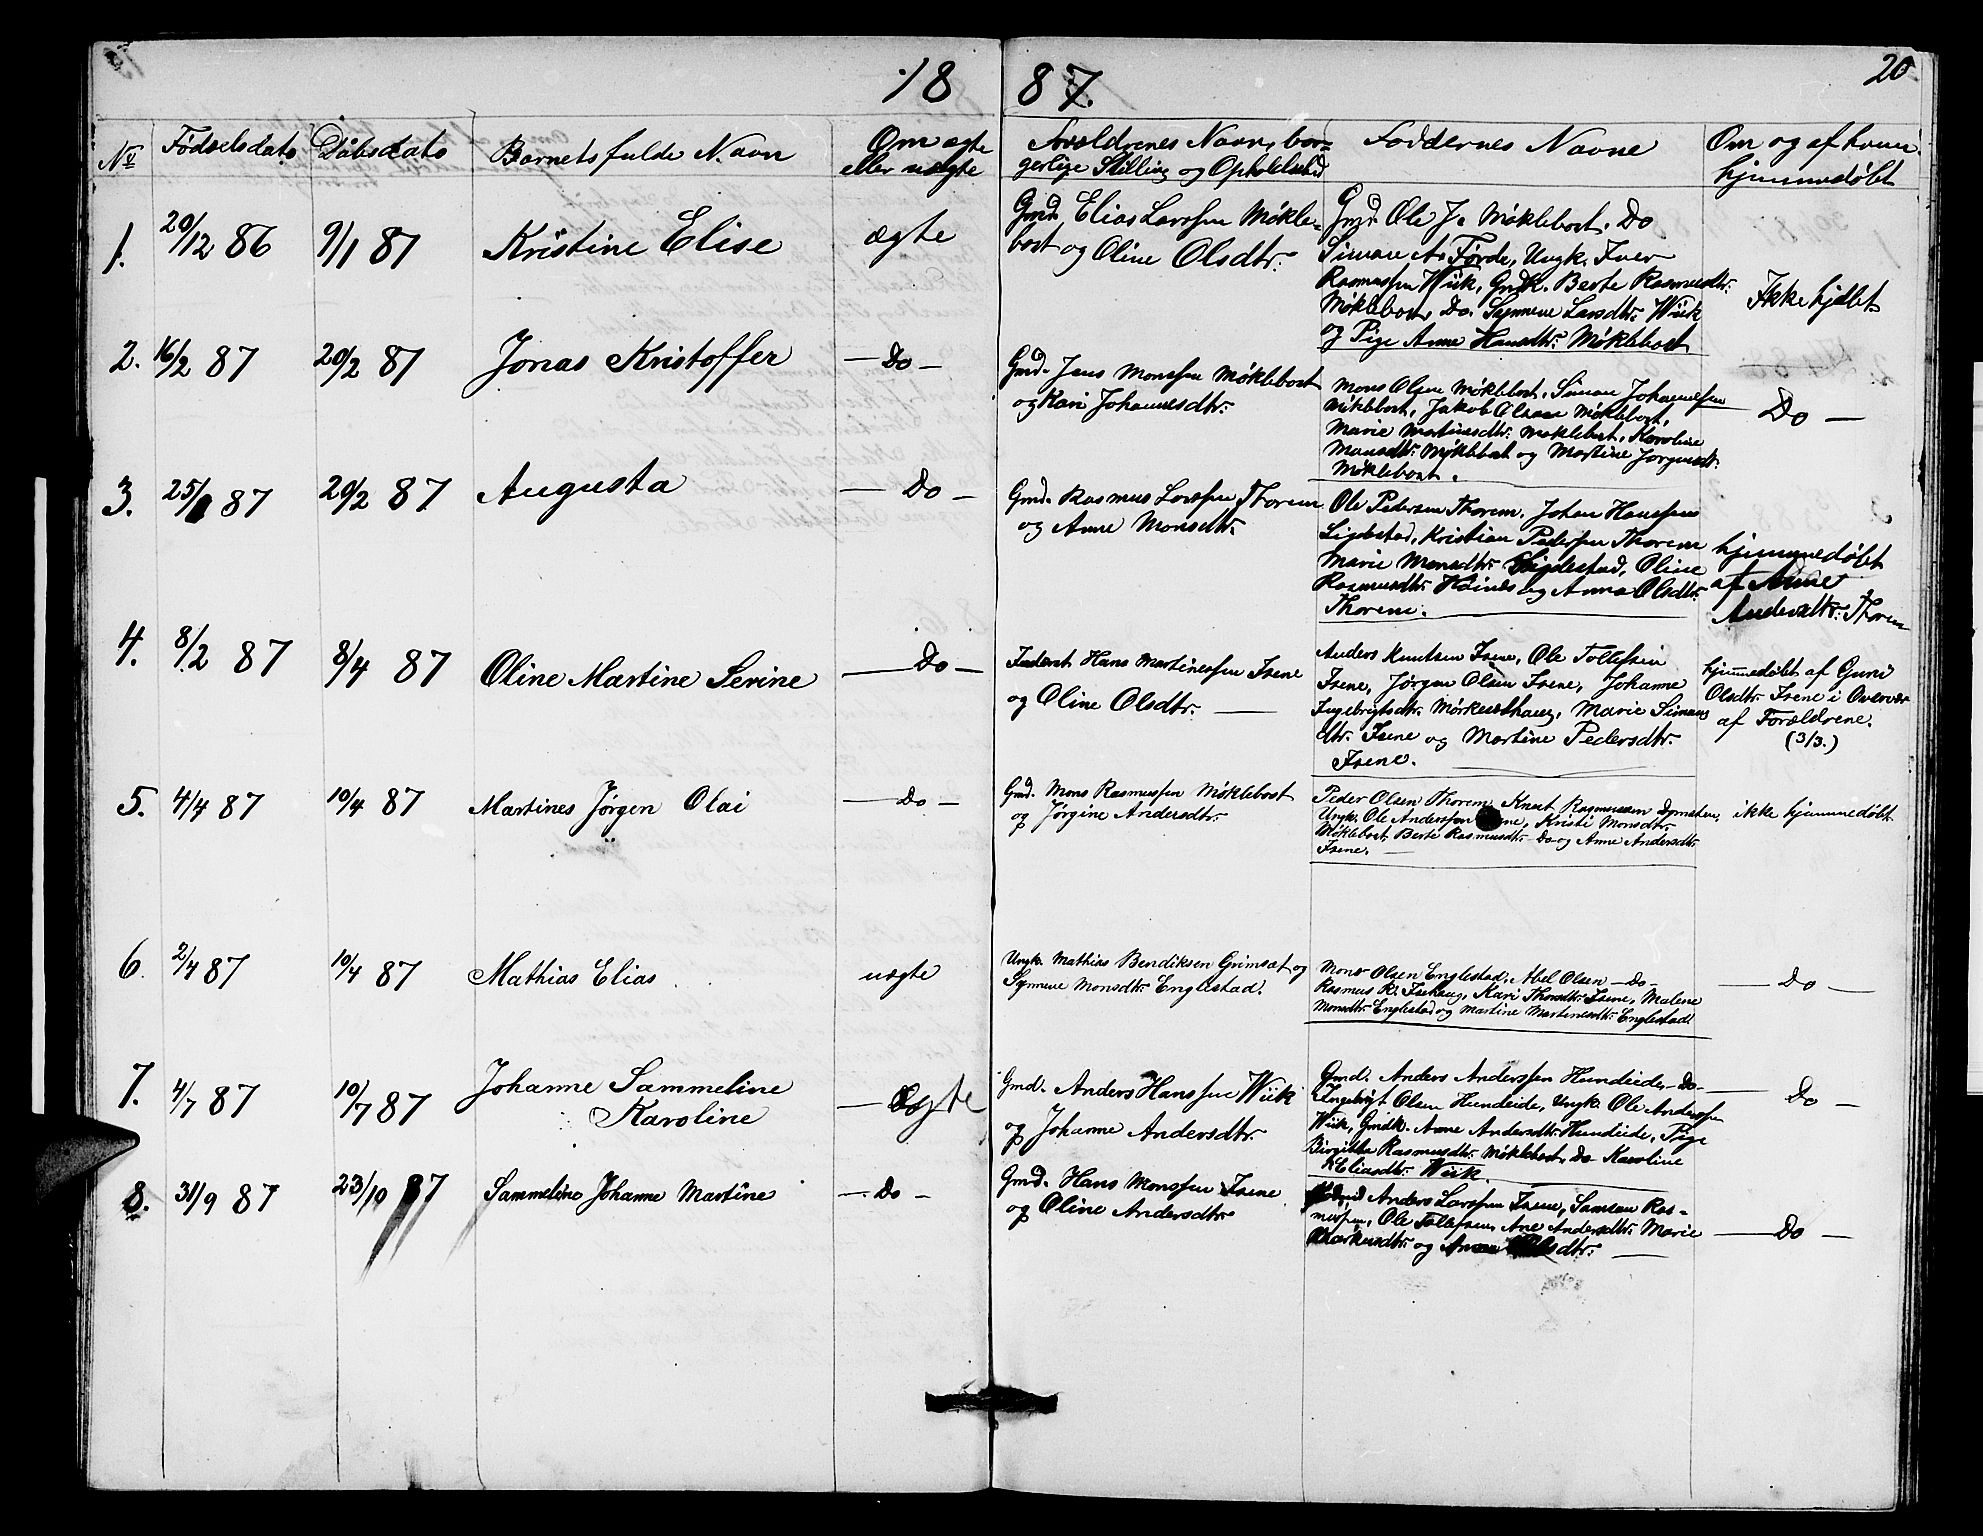 18 87. 20
No Fødselsdato Dåbsdato Barnets fulde Navn Om ægte eller uægte Forældrenes Navn, borgerlige Stilling og Opholdssted Faddernes Navne Om og af hvem hjemmedøbt
1. 29/12 86 9/1 87 Kristine Elise ægte
Gmd. Elias Larssen Møkle-
bost og Oline Olsdtr.
Gmd. Ole J. Møklebost. Do
Simon A. Førde, Ungk. Iver
Rasmussen Wiik, Gmdk. Berte Rasmusdtr.
Møklebost, Do. Synneve Larsdtr. Wiik
og Pige Anne Hansdtr. Møklebost
Ikke hjdbt.
2. 16/2 87 20/2 87 Jonas Kristoffer — Do —
Gmd. Jens Monssen Møklebost
og Kari Johannesdtr.
Mons Olsen Møklebost, Simon Johannessen
Møklebost, Jakob Olsen Møklebost,
Marie Martinesdtr. Møklebost, Karoline
Monsdtr. Møklebost og Martine Jørgensdtr.
Møklebost.
Do —
3. 25/1 87 20/2 87 Augusta — Do —
Gmd. Rasmus Larssen Thorem
og Anne Monsdtr.
Ole Pedersen Thorem, Johan Hanssen
Ligdestad, Kristian Pedersen Thorem
Marie Monsdtr. Ligdestad, Oline
Rasmusdtr. Høines og Anna Olsdtr.
Thorem.
hjemmedøbt
af Anne
Andersdtr. Thorem
4. 8/2 87 8/4 87 Oline Martine Serine — Do —
Inderst Hans Martinessen Isene
og Oline Olsdtr. —
Anders Knutsen Isene, Ole Tollefsen
Isene, Jørgen Olsen Isene, Johanne
Ingebrigtsdtr. Mørkusthaug, Marie Simons
dtr. Isene og Martine Pedersdtr.
Isene.
hjemmedøbt af Guni
Olsdtr. Isene i Overvær
af Forældrene.
(3/3.)
5. 4/4 87 10/4 87 Martines Jørgen Olai — Do —
Gmd. Mons Rasmussen Møklebost
og Jørgine Andersdtr.
Peder Olsen Thorem, Knut Rasmussen
Ungk. Ole Anderssen Isene, Kristi Monsdtr.
Møklebost, Berte Rasmusdtr. Do og Anne Andersdtr.
Isene.
ikke hjemmedøbt
6. 2/4 87 10/4 87 Mathias Elias uægte
Ungk. Mathias Bendiksen Grimsæt og
Synneve Monsdtr. Englestad.
Mons Olsen Englestad, Abel Olsen — Do —
Rasmus R. Isehaug, Kari Thorsdtr. Isene, Malene
Monsdtr. Englestad og Martine Martinesdtr. Englestad.
— Do —
7. 4/7 87 10/7 87 Johanne Sammeline
Karoline — ægte
Gmd. Anders Hanssen Wiik
og Johanne Andersdtr.
Gmd. Anders Anderssen Hundeide, Do —
Ingebrigt Olsen Hundeide, Ungk. Ole Anderssen
Wiik, Gmdk. Anne Andersdtr. Hundeide, Pige
Birgithe Rasmusdtr. Møklebost, Do Karoline
Eliasdtr. Wiik.
Do —
8. 31/9 87 23/10 87 Sammeline Johanne Martine — Do —
Gmd. Hans Monssen Isene
og Oline Andersdtr.
Anders Larssen Isene, Samson Ras-
mussen, Ole Tollefsen, Ane Andersdtr. Marie
Markusdtr. og Anne Olsdtr. —
— Do —